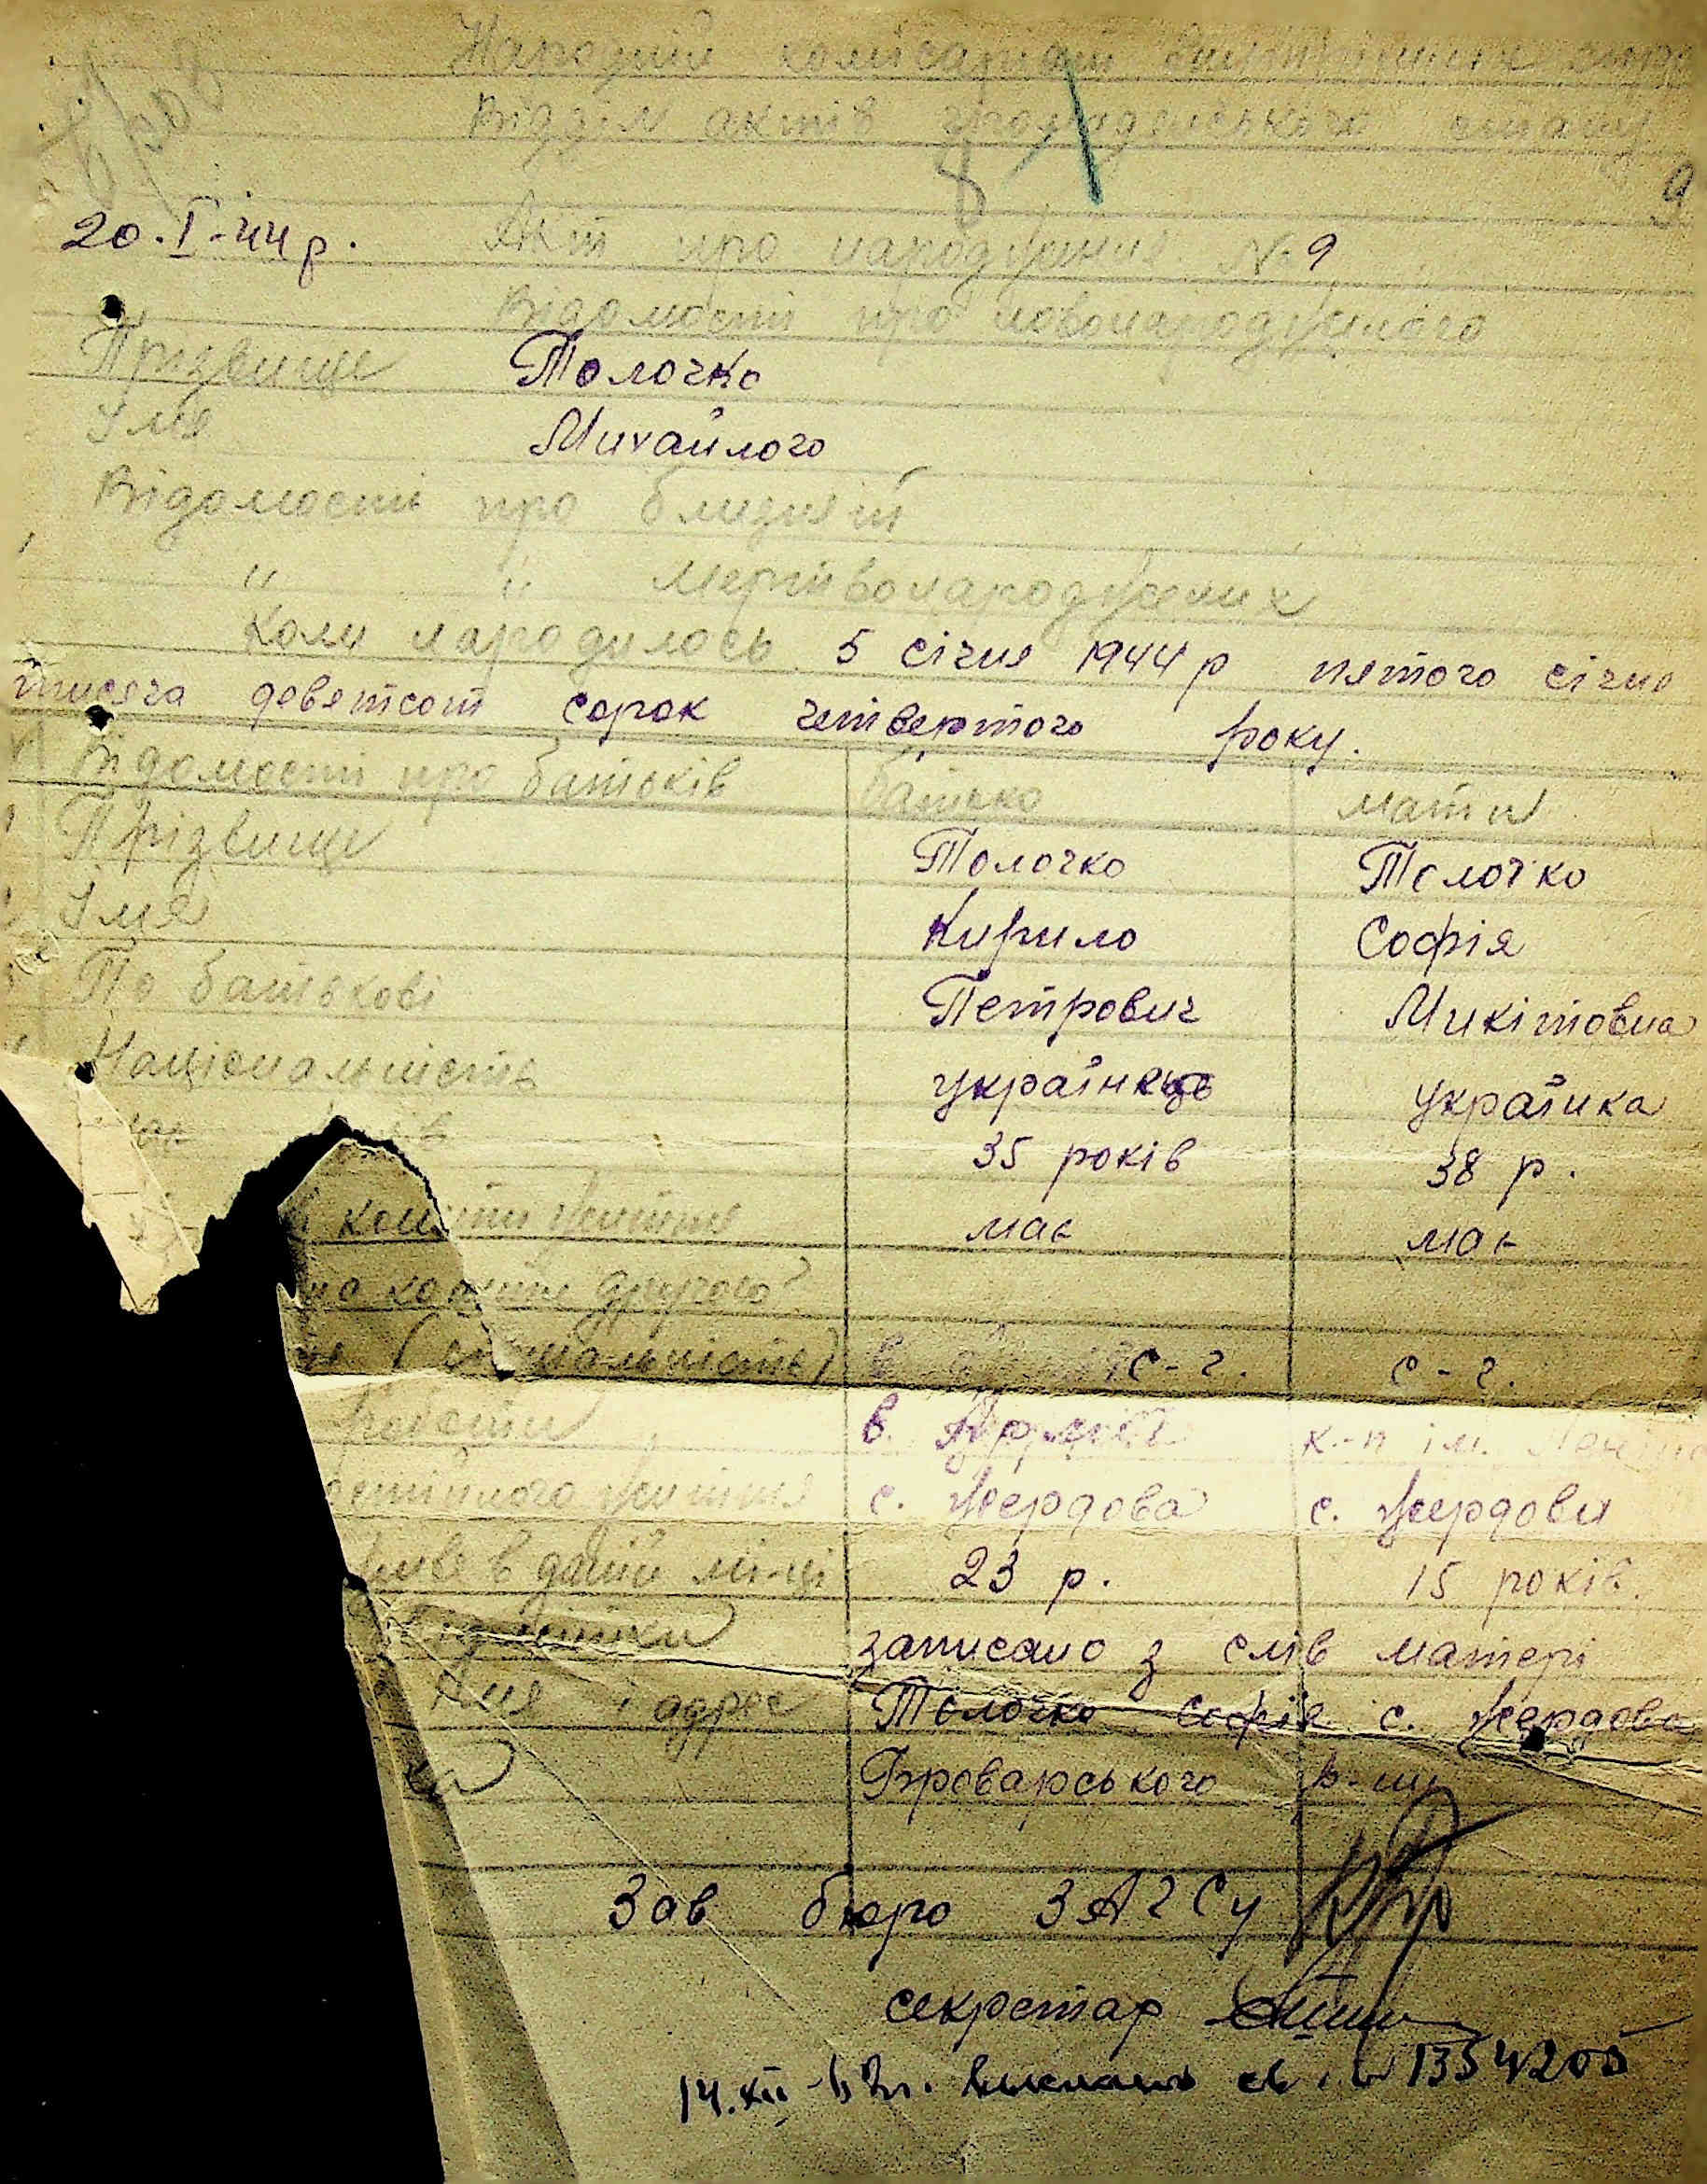 Народній комісаріат внутрішніх
Відділ актів громадського стану
8
9
20.I-44р. Акт про народження № 9
Відомості про новонародженого
Прізвище Толочко
Імя Михайлого
Відомості про близнят
" " мертвонароджених
Коли народилось 5 січня 1944 р пятого січня
тисяча девятсот сорок четвертого року.
Відомості про батьків батько мати
Прізвище Толочко Толочко
Імя Кирило Софія
По батькові Петрович Микітовна
Національність українець українка
35 років 38 р.
життя має має
другого
с-г. с-г.
в Армії к-п ім. Леніна
життя с. Жердова с. Жердови
в даній м-ці 23 р. 15 років.
записано з слів матері
імя і адрес Толочко Софія с. Жердова
Броварського р-ну
Зав бюро ЗАГСу
секретар
14.XII 1354205